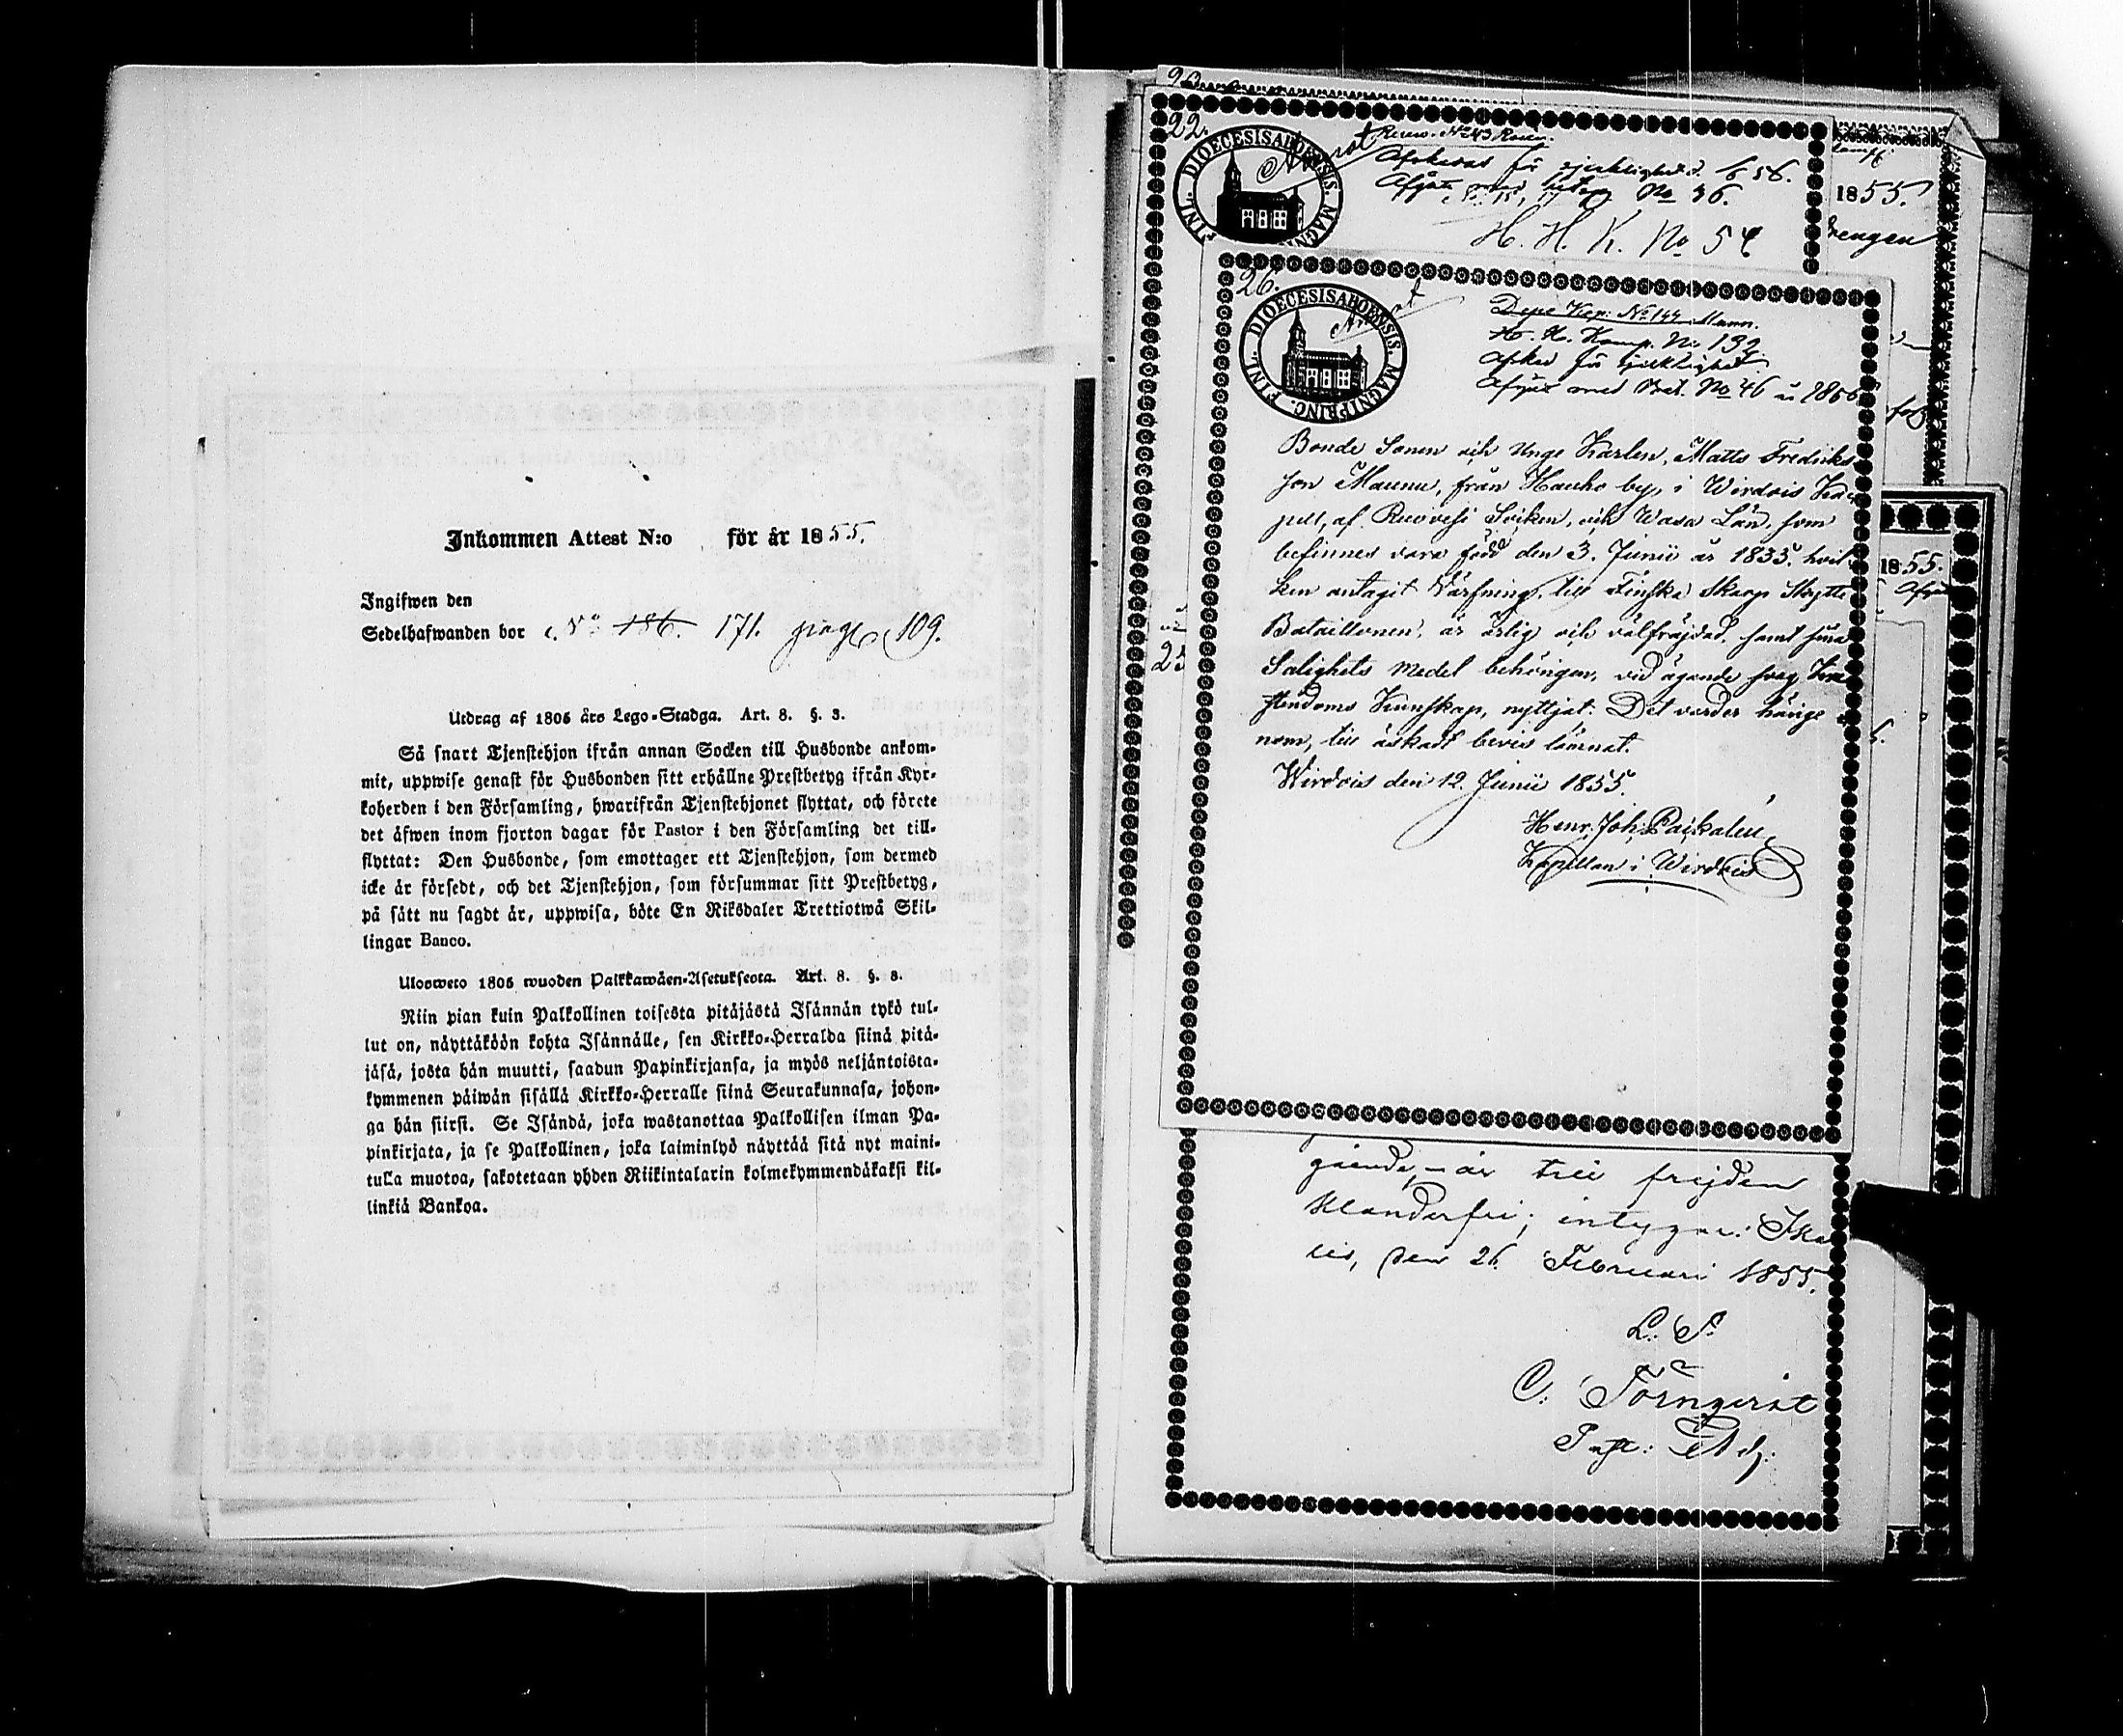 Inkommen Attest N:o för år 1855.
Ingifwen den
Sedelhafwanden bor c. No 186. 171. pag 109.
Utdrag af 1805 års Lego-Stadga. Art. 8. §. 3.
Så snart Tjenstehjon ifrån annan Socken till Husbonde ankom-
mit, uppwise genast för Husbonden sitt erhållne Prestbetyg ifrån Kyr-
koherden i den Församling, hwarifrån Tjenstehjonet flyttat, och förete
det äfwen inom fjorton dagar för Pastor i den Församling det till-
flyttat: Den Husbonde, som emottager ett Tjenstehjon, som dermed
icke är försedt, och det Tjenstehjon, som försummar sitt Prestbetyg,
på sätt nu sagdt är, uppwisa, böte En Riksdaler Trettiotwå Skil-
lingar Banco.
Ulosweto 1805 wuoden Palkkawäen-Asetuksesta. Art. 8. §. 3.
Niin pian kuin Palkollinen toisesta pitäjästä Isännän tykö tul-
lut on, näyttäköön kohta Isännälle, sen Kirkko-Herralda siinä pitä-
jäsä, josta hän muutti, saadun Papinkirjansa, ja myös neljäntoista-
kymmenen päiwän sisällä Kirkko-Herralle siinä Seurakunnasa, johon-
ga hän siirsi. Se Isändä, joka wastanottaa Palkollisen ilman Pa-
pinkirjata, ja se Palkollinen, joka laiminlyö näyttää sitä nyt maini-
tulla muotoa, sakotetaan yhden Riikintalarin kolmekymmendäkaksi kil-
linkiä Bankoa.
22.
DIOECESIS ABOENSIS. MAGNI FINL.
Afskedad för sjuklighet d. 6 56.
No 36.
H. H. K. No 54
1855.
Drengen
26.
DIOECESIS ABOENSIS. MAGNI PRINC. FINL.
No 144 Mann.
H. H. Komp. No 139
Afsked för sjuklighet
Afgått med Bet. No 46 år 1856
Bonde Sonen och Unge Karlen, Matts Fredriks-
son Maunu, från Hauho by, i Wirdois Ka-
pell, af Ruovesi Socken, och Wasa Län, som
befinnes vara född den 3. Junii år 1835. hvil-
ken antagit Värfning till Finska Skarp Skytte
Bataillonen, är ärlig och välfräjdad, samt sina
Salighets medel behörigen, vid ägande svag Kri-
stendoms Kunskap, nyttjat: Det varder härige-
nom, till äskadt bevis lämnat.
Wirdois den 12. Junii 1855.
Henr. Joh. Paikalén
Kapellan i Wirdois
1855.
25
gående, är till frejden
klanderfri; intygar:
den 26. Februari 1855.
L. S.
C: Törnqvist
Adj: